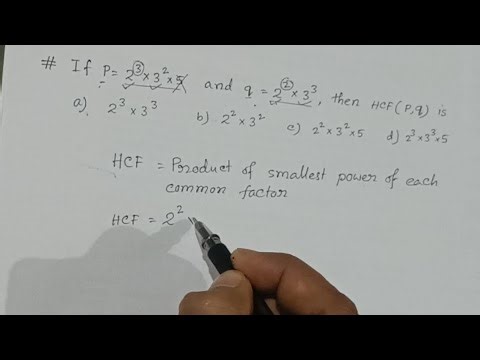 # If P = 2³ × 3² × 5 and q = 2² × 3³, then HCF(P,q) is
a) 2³ × 3³ b) 2² × 3² c) 2² × 3² × 5 d) 2³ × 3³ × 5
HCF = Product of smallest power of each
common factor
HCF = 2²